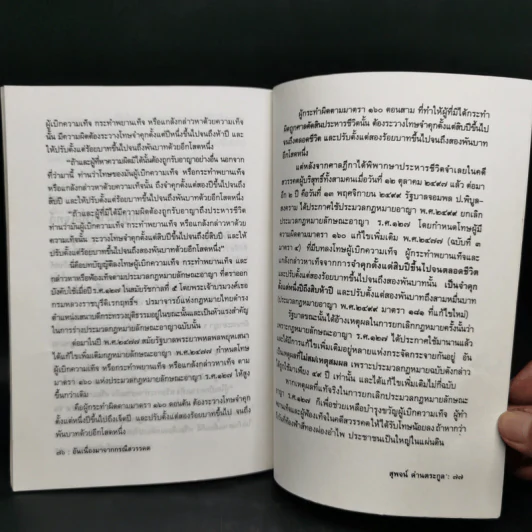 ผู้เบิกความเท็จ กระทำพยานเท็จ หรือแกล้งกล่าวหาด้วยความเท็จ
นั้น มีความผิดต้องระวางโทษจำคุกตั้งแต่ปีหนึ่งขึ้นไปจนถึงห้าปี และ
ให้ปรับตั้งแต่ร้อยบาทขึ้นไปจนถึงพันบาทด้วยอีกโสดหนึ่ง
"ถ้าและผู้ที่หาความผิดมิได้นั้นต้องถูกรับอาญาอย่างอื่น นอกจาก
ที่ว่ามานี้ ท่านว่าโทษของมันผู้เบิกความเท็จ หรือกระทำพยานเท็จ
หรือแกล้งกล่าวหาด้วยความเท็จนั้น ถึงจำคุกตั้งแต่สามปีขึ้นไปจนถึง
สิบปี และให้ปรับตั้งแต่ร้อยบาทขึ้นไปจนถึงพันบาทด้วยอีกโสดหนึ่ง
"ถ้าและผู้ที่ได้มีความผิดมิได้นั้นต้องถูกรับอาญาถึงประหารชีวิต
ท่านว่ามันผู้เบิกความเท็จ หรือกระทำพยานเท็จ หรือแกล้งกล่าวหา
ด้วยความเท็จนั้น ระวางโทษจำคุกตั้งแต่สิบปีขึ้นไปจนถึงยี่สิบปี และให้
ปรับตั้งแต่ร้อยบาทขึ้นไปจนถึงพันบาทด้วยอีกโสดหนึ่ง"
นี่คือบทบัญญัติลงโทษผู้เบิกความเท็จ กระทำพยานเท็จ และ
กล่าวหาหรือฟ้องเท็จตามประมวลกฎหมายลักษณะอาญา ที่ตราออก
บังคับใช้เมื่อปี ร.ศ.๑๒๗ ในสมัยรัชกาลที่ ๕ โดยพระเจ้าบรมวงศ์เธอ
กรมหลวงราชบุรีดิเรกฤทธิ์ - ปรมาจารย์แห่งกฎหมายไทยดำรง
ตำแหน่งเสนาบดีกระทรวงยุติธรรมอยู่ในขณะนั้น และเป็นตัวแรงสำคัญ
ในการร่างประมวลกฎหมายลักษณะอาญาฉบับนั้น
ต่อมาในปี พ.ศ.๒๔๗๗ สมัยรัฐบาลพระยาพหลพลพยุหเสนา
ได้แก้ไขเพิ่มเติมกฎหมายลักษณะอาญา พ.ศ.๒๔๗๗ กำหนดโทษ
ผู้เบิกความเท็จ หรือกระทำพยานเท็จ หรือแกล้งกล่าวหาเท็จ ตาม
มาตรา ๑๖๐ แห่งประมวลกฎหมายลักษณะอาญา ร.ศ.๑๒๗ ให้สูง
ขึ้นกว่าเดิม
คือผู้กระทำผิดตามมาตรา ๑๖๐ ตอนต้น ต้องระวางโทษจำคุก
ตั้งแต่หนึ่งปีขึ้นไปถึงเจ็ดปี และปรับตั้งแต่สองร้อยบาทขึ้นไป จนถึง
พันบาทด้วยอีกโสดหนึ่ง
๗๖ : อันเนื่องมาจากกรณีสวรรคต
ผู้กระทำผิดตามมาตรา ๑๖๐ ตอนสาม ที่ทำให้ผู้ที่มิได้กระทำ
ผิดถูกศาลตัดสินประหารชีวิตนั้น ต้องระวางโทษจำคุกตั้งแต่สิบปีขึ้นไป
จนถึงตลอดชีวิต และปรับตั้งแต่สองร้อยบาทขึ้นไปจนถึงสองพันบาทด้วย
อีกโสดหนึ่ง
แต่หลังจากศาลฎีกาได้พิพากษาประหารชีวิตจำเลยในคดี
สวรรคตผู้บริสุทธิ์ทั้งสามคนเมื่อวันที่ ๑๒ ตุลาคม ๒๔๙๗ แล้ว ต่อมา
อีก ๒ ปี คือวันที่ ๑๓ พฤศจิกายน ๒๔๙๙ รัฐบาลจอมพล ป.พิบูล-
สงคราม ได้ประกาศใช้ประมวลกฎหมายอาญา พ.ศ.๒๔๙๙ ยกเลิก
ประมวลกฎหมายลักษณะอาญา ร.ศ.๑๒๗ โดยกำหนดโทษผู้มี
ความผิดตามมาตรา ๑๖๐ แก้ไขเพิ่มเติม พ.ศ.๒๔๗๗ (ฉบับที่ ๓
มาตรา ๔) ที่มีบทลงโทษผู้เบิกความเท็จ ผู้กระทำพยานเท็จและ
กล่าวหาเท็จจากการจำคุกตั้งแต่สิบปีขึ้นไปจนตลอดชีวิต
และปรับตั้งแต่สองร้อยบาทขึ้นไปจนถึงสองพันบาทนั้น เป็นจำคุก
ตั้งแต่หนึ่งปีถึงสิบห้าปี และปรับตั้งแต่สองพันบาทถึงสามหมื่นบาท
(ประมวลกฎหมายอาญา พ.ศ.๒๔๙๙ มาตรา ๑๘๑ ที่แก้ไขใหม่)
รัฐบาลขณะนั้นได้อ้างเหตุผลในการยกเลิกกฎหมายครั้งนั้นว่า
เพราะกฎหมายลักษณะอาญา ร.ศ.๑๒๗ ได้ประกาศใช้มานานแล้ว
และได้มีการแก้ไขเพิ่มเติมอยู่หลายแห่งกระจัดกระจายกันอยู่ อัน
เป็นเหตุผลที่ไม่สมเหตุสมผล เพราะประมวลกฎหมายฉบับดังกล่าว
ได้ใช้มาเพียง ๔๙ ปี เท่านั้น และได้แก้ไขเพิ่มเติมไม่กี่ฉบับ
หากเหตุผลที่แท้จริงในการยกเลิกประมวลกฎหมายลักษณะ
อาญา ร.ศ.๑๒๗ ก็เพื่อช่วยเหลือบำรุงขวัญผู้เบิกความเท็จ ผู้ทำ
พยานเท็จและผู้ฟ้องเท็จในคดีสวรรคตให้รับโทษน้อยลง ถ้าหากว่า
ฟ้าสีทองผ่องอำไพ ประชาชนเป็นใหญ่ในแผ่นดิน
สุพจน์ ด่านตระกูล : ๗๗